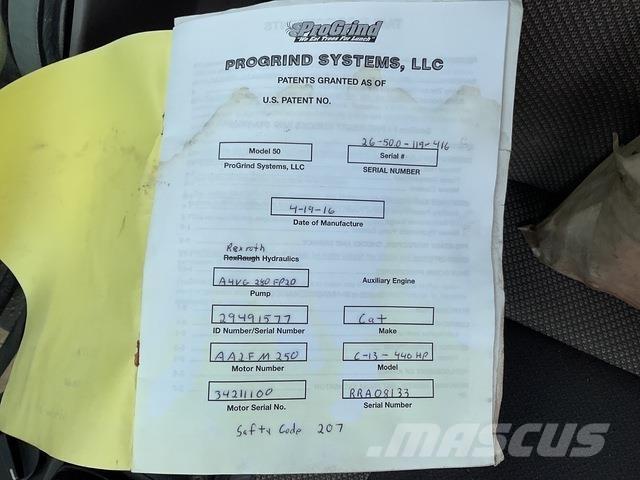 ProGrind
"We Eat Trees For Lunch"
PROGRIND SYSTEMS, LLC
PATENTS GRANTED AS OF
U.S. PATENT NO.
26-500-119-416
Model 50
Serial #
ProGrind Systems, LLC
SERIAL NUMBER
4-19-16
Date of Manufacture
Rexroth
RexRough Hydraulics
A4VG 250 EP20
Auxiliary Engine
Pump
29491577
Cat
ID Number/Serial Number
Make
AA2FM250
C-13-440HP
Motor Number
Model
34211100
RRA08133
Motor Serial No.
Serial Number
Safty Code 207
MASCUS